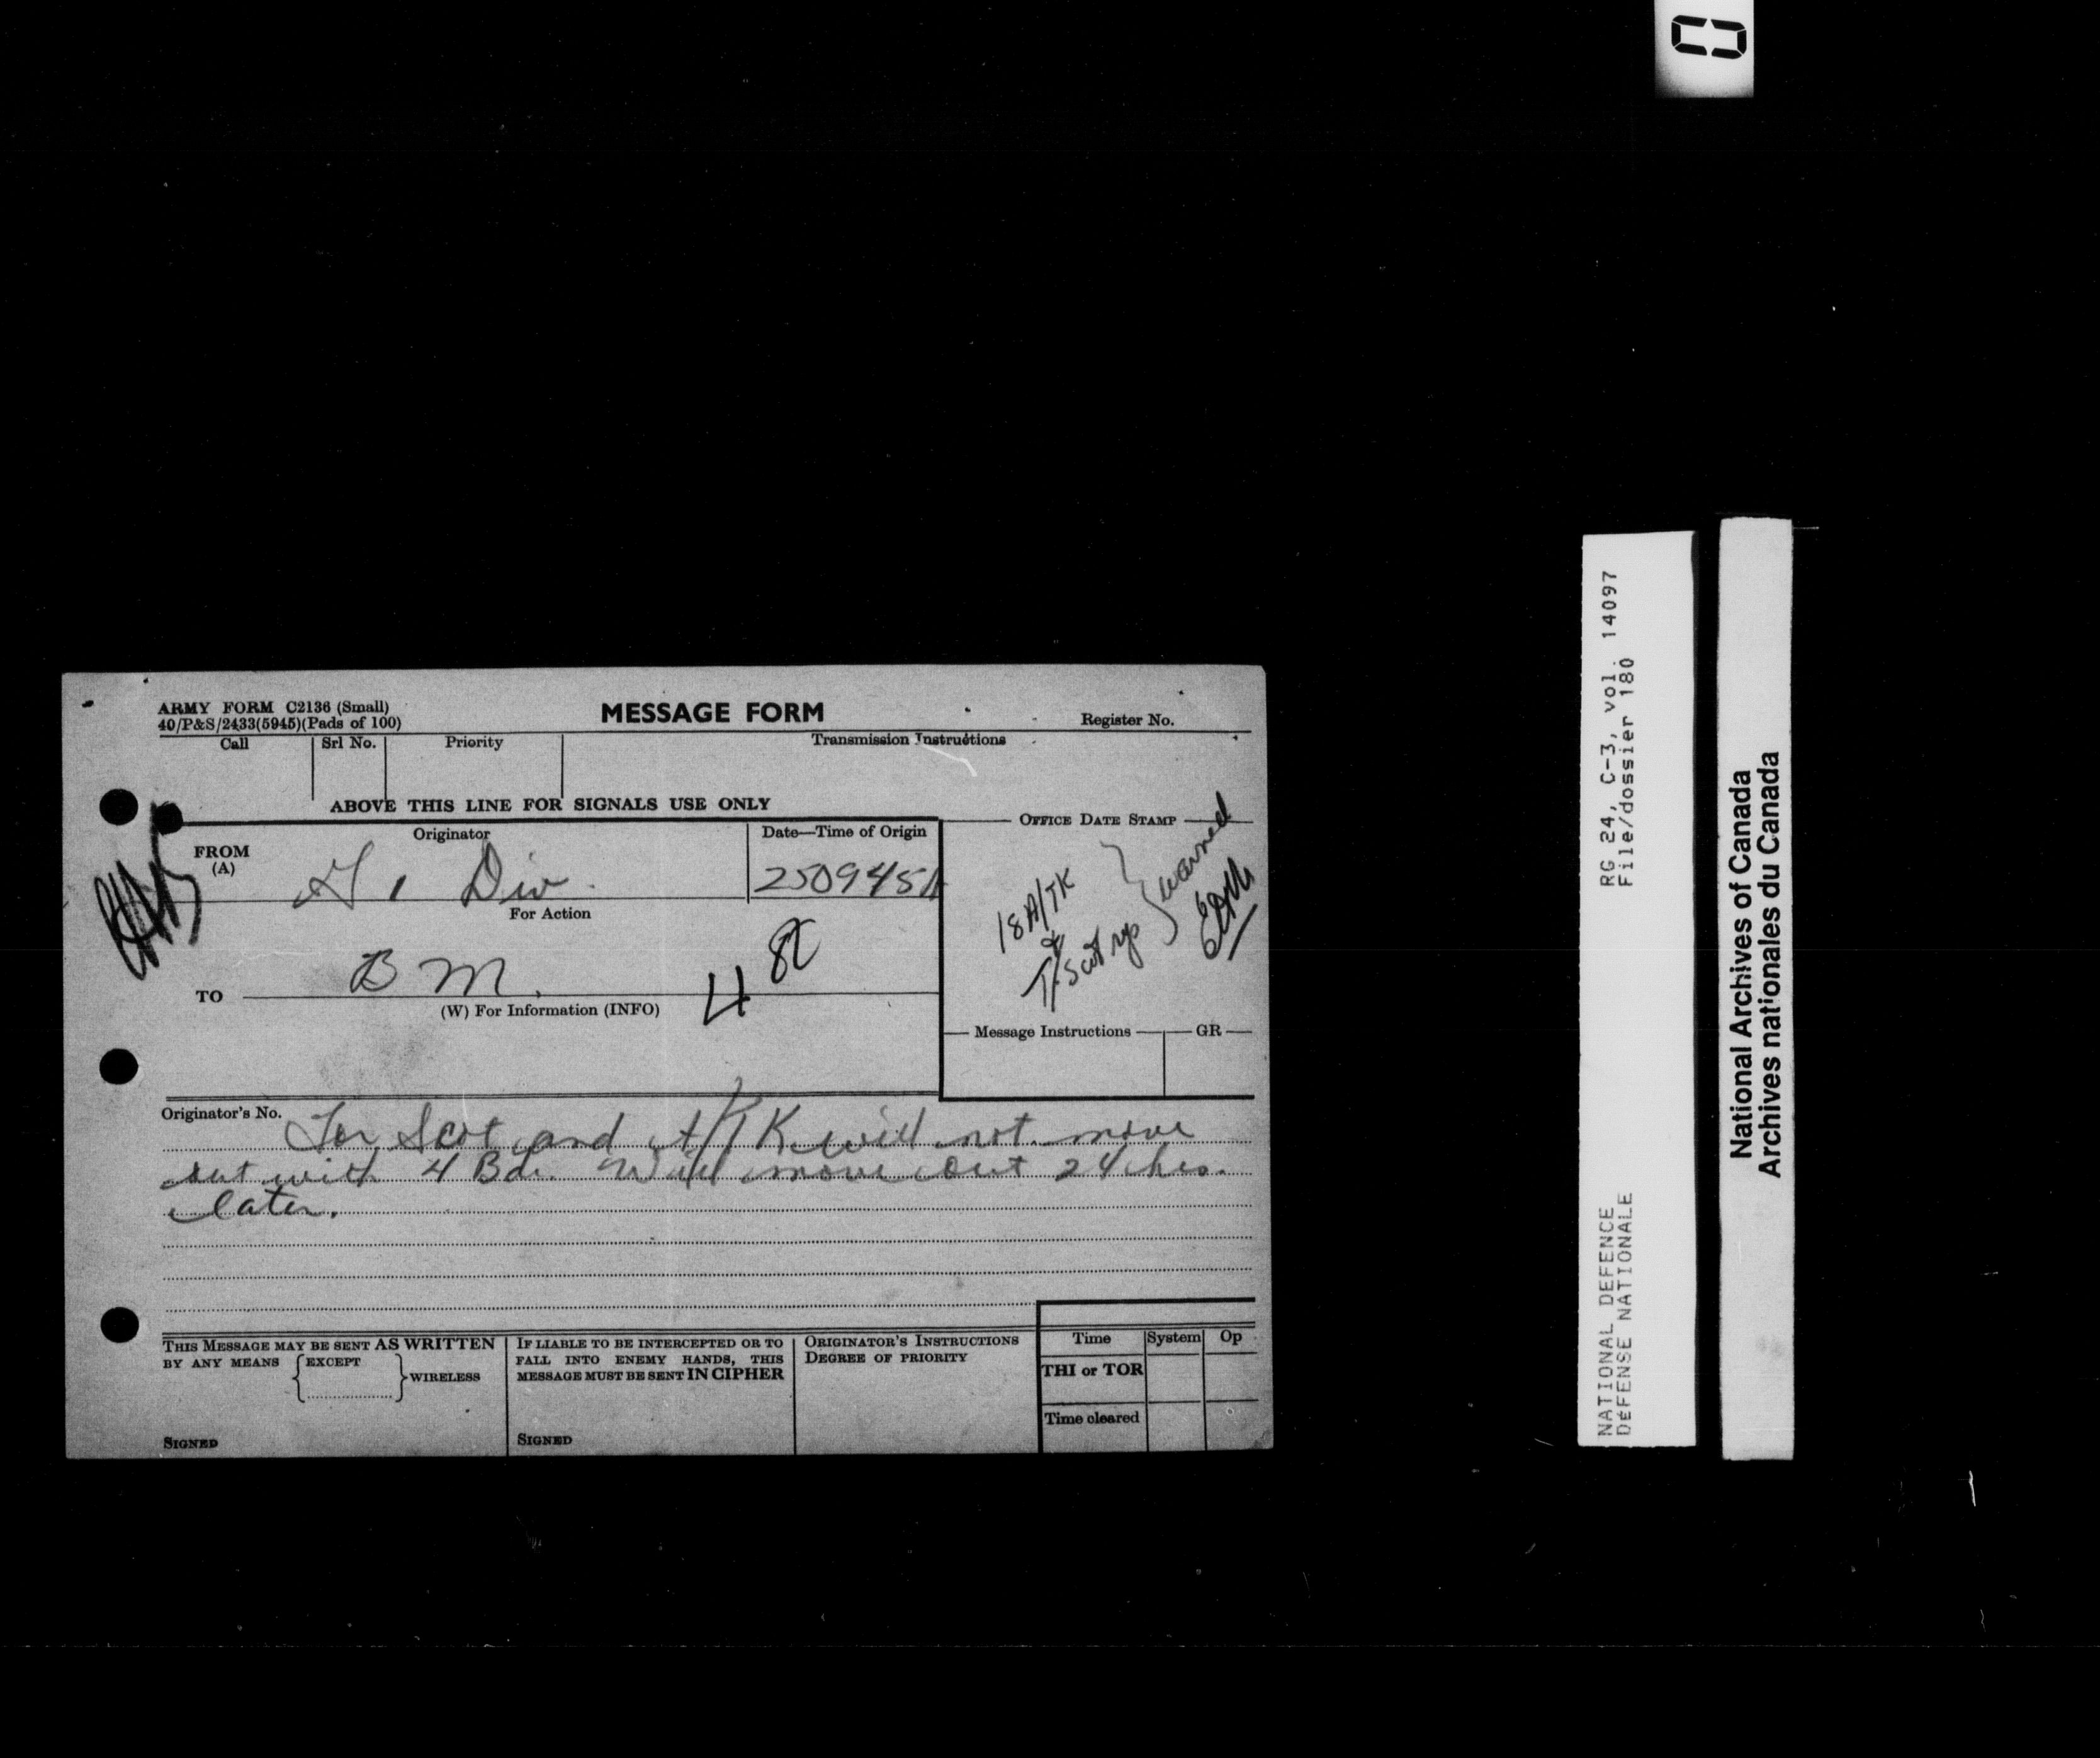 ARMY FORM C2136 (Small)
40/P&S/2433(5945)(Pads of 100)
MESSAGE FORM
Register No.
Call
Srl No.
Priority
Transmission Instructions
ABOVE THIS LINE FOR SIGNALS USE ONLY
FROM
(A)
Originator
G 1 Div.
Date—Time of Origin
250945A
OFFICE DATE STAMP
18 A/TK
&
T/Scot
warned
For Action
TO
B M.
4
(W) For Information (INFO)
Message Instructions
GR
Originator's No.
Tor Scot and A/TK will not move
out with 4 Bde. Will move out 24 hrs.
later.
THIS MESSAGE MAY BE SENT AS WRITTEN
BY ANY MEANS
EXCEPT
WIRELESS
SIGNED
IF LIABLE TO BE INTERCEPTED OR TO
FALL INTO ENEMY HANDS, THIS
MESSAGE MUST BE SENT IN CIPHER
SIGNED
ORIGINATOR'S INSTRUCTIONS
DEGREE OF PRIORITY
Time
System
Op
THI or TOR
Time cleared
RG 24, C-3, vol. 14097
File/dossier 180
NATIONAL DEFENCE
DÉFENSE NATIONALE
National Archives of Canada
Archives nationales du Canada